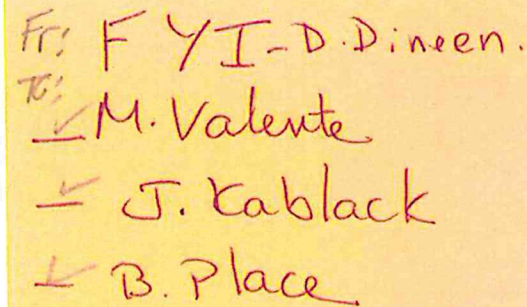 Fr: FYI - D. Dineen.
To:
✓ M. Valente
✓ J. Kablack
✓ B. Place